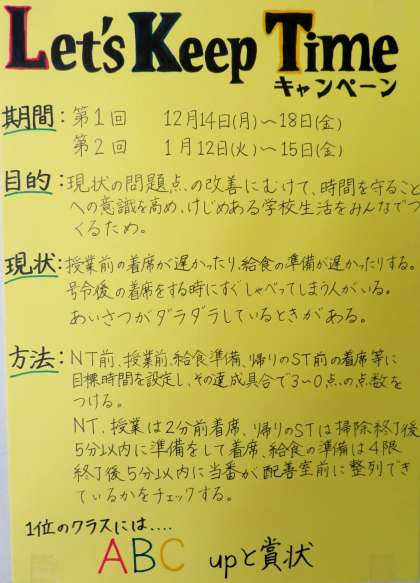 Let's Keep Time
キャンペーン
期間：第1回 12月14日(月)～18日(金)
第2回 1月12日(火)～15日(金)
目的：現状の問題点の改善にむけて、時間を守ること
への意識を高め、けじめある学校生活をみんなでつ
くるため。
現状：授業前の着席が遅かったり、給食の準備が遅かったりする。
号令後の着席をする時にすぐしゃべってしまう人がいる。
あいさつがダラダラしているときがある。
方法：NT前、授業前、給食準備、帰りのST前の着席等に
目標時間を設定し、その達成具合で3～0点の点数を
つける。
NT、授業は2分前着席、帰りのSTは掃除終了後
5分以内に準備をして着席、給食の準備は4限
終了後5分以内に当番が配善室前に整列でき
ているかをチェックする。
1位のクラスには....
ABC upと賞状